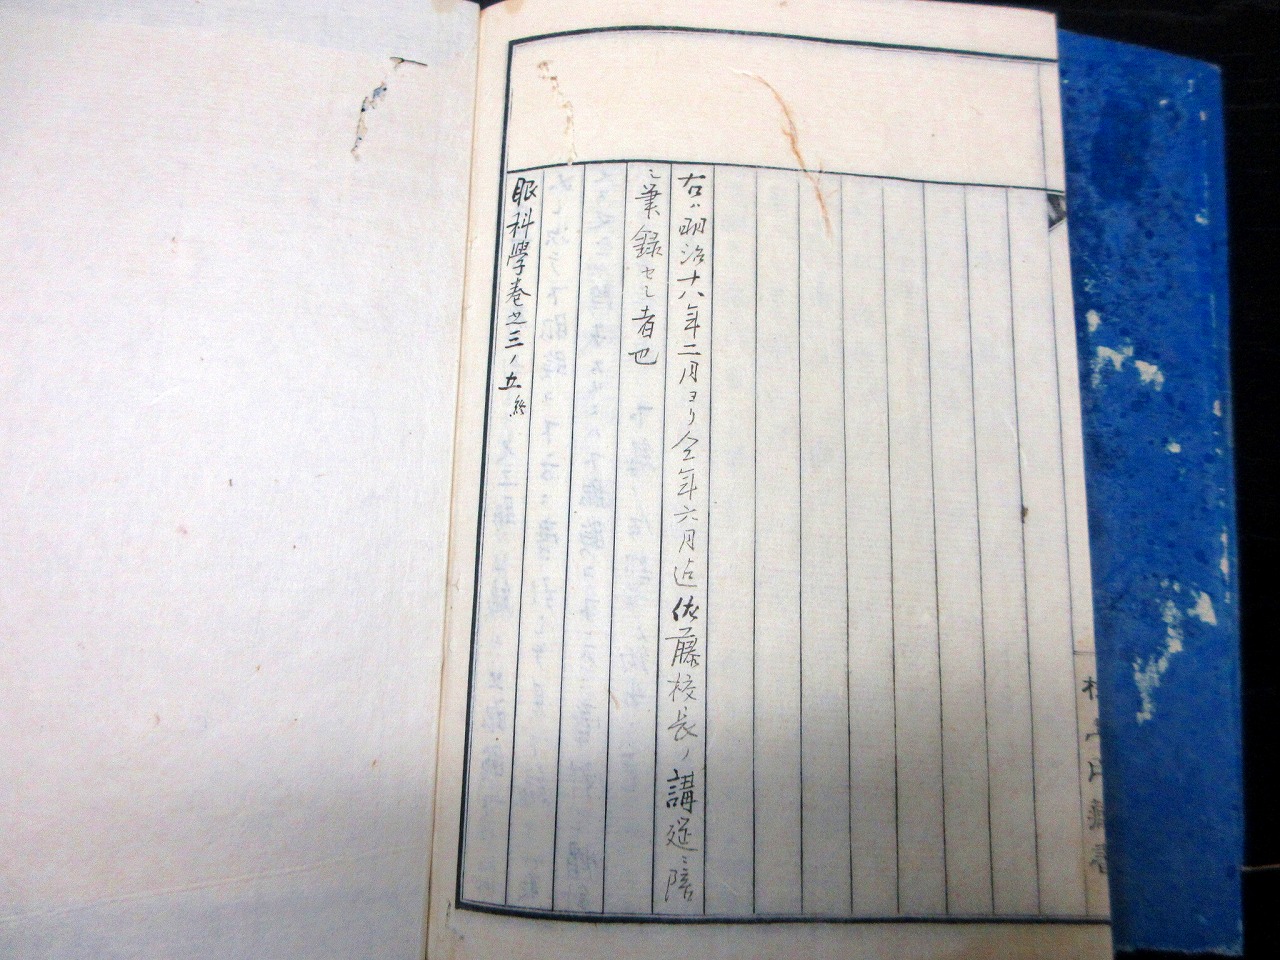 右ハ明治十八年二月ヨリ仝年六月迄佐藤校長ノ講筵ニ陪
シ筆録セシ者也
眼科學巻之三ノ五終